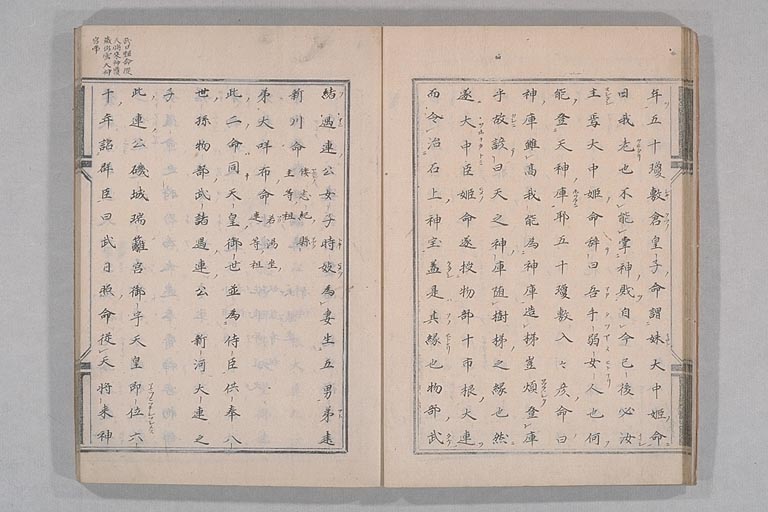 年五十瓊敷倉皇子命謂妹大中姬命
曰我老也不能掌神貺自今已後必汝
主焉大中姬命辞曰吾手弱女人也何
能登天神庫耶五十瓊敷入々彦命曰
神庫雖高我能為神庫造梯豈煩登庫
乎故諺曰天之神庫随樹梯之縁也然
遂大中臣姬命遂授物部十市根大連
而令治石上神宝盖是其縁也物部武
結遇連公女子時姣為妻生五男弟建
新川命
倭志紀縣
主等祖
弟大咩布命
若湯坐
連等祖
此二命同天皇御世並為侍臣供奉八
世孫物部武諸遇連公新河大連之
子
此連公磯城瑞籬宮御宇天皇即位六
十年詔群臣曰武日照命從天将来神
武日照命從
天将来神宝
蔵出雲大神
宮中